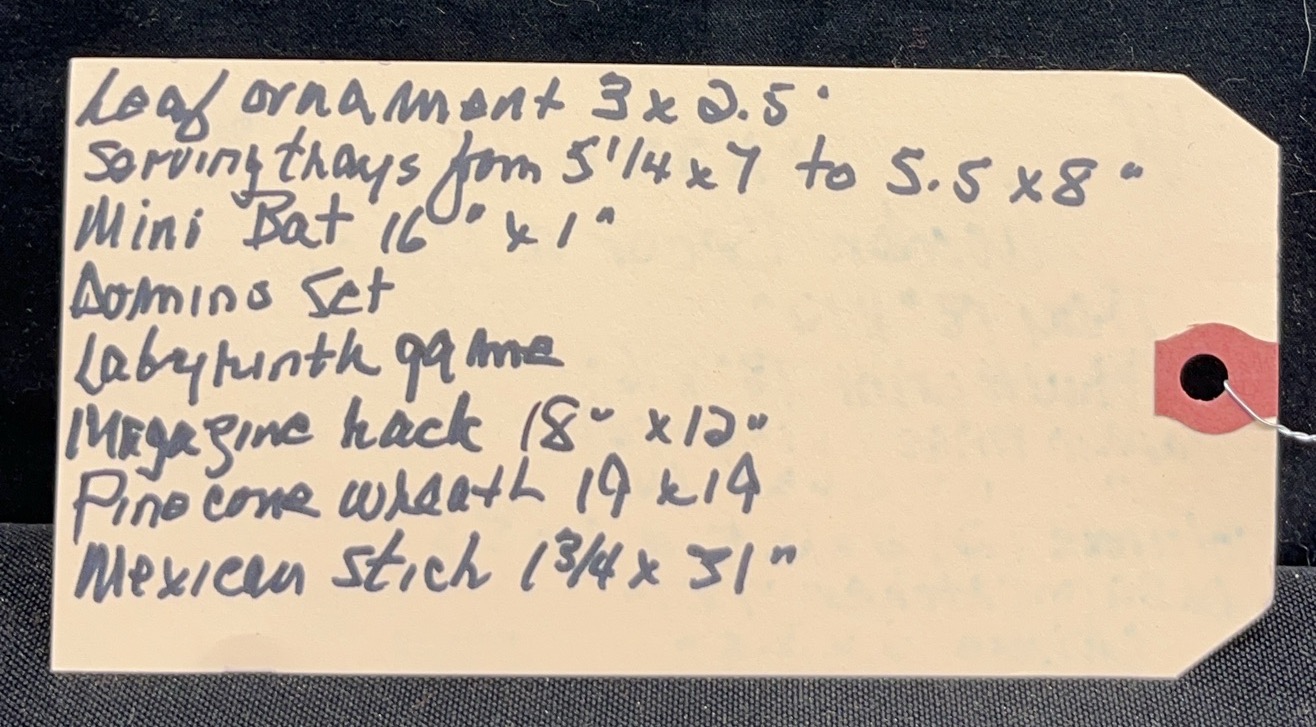 Leaf ornament 3 x 2.5"
Serving thays from 5 1/4 x 7 to 5.5 x 8"
Mini Bat 16" x 1"
Domino Set
Labyrinth game
Magazine hack 18" x 12"
Pine cone wreath 19 x 19
Mexican Stich 1 3/4 x 31"